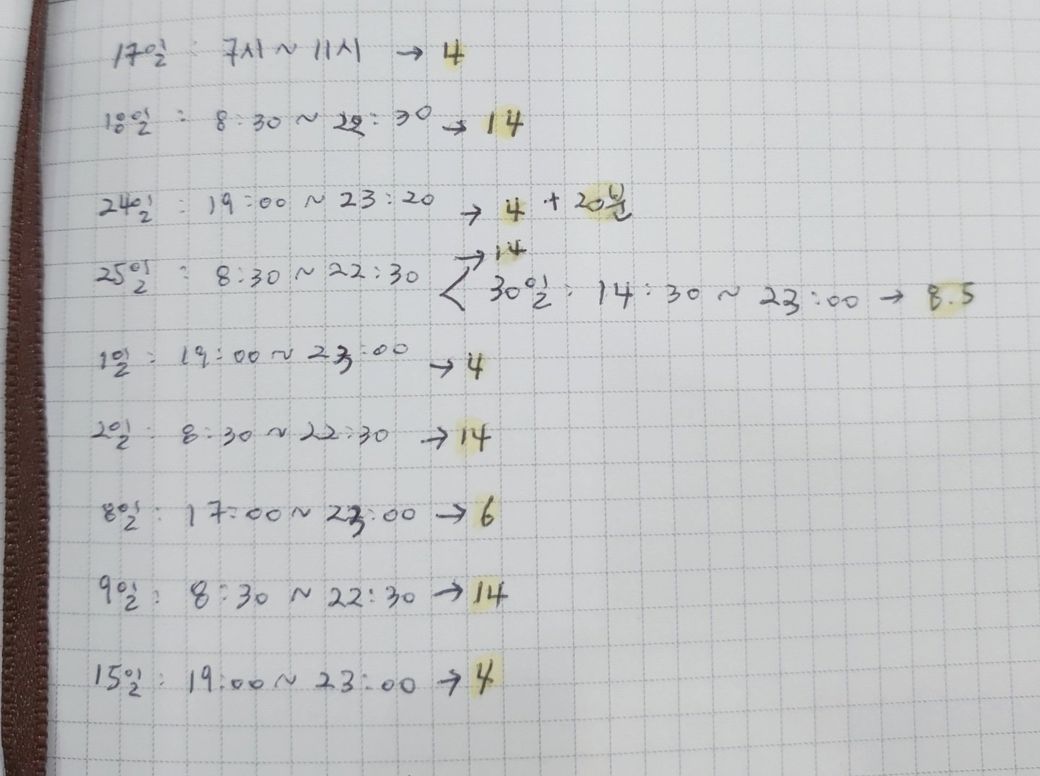 17일 : 7시 ~ 11시 → 4
18일 : 8:30 ~ 22:30 → 14
24일 : 19:00 ~ 23:20 → 4 + 20분
25일 : 8:30 ~ 22:30 → 14
30일 : 14:30 ~ 23:00 → 8.5
1일 : 19:00 ~ 23:00 → 4
2일 : 8:30 ~ 22:30 → 14
8일 : 17:00 ~ 23:00 → 6
9일 : 8:30 ~ 22:30 → 14
15일 : 19:00 ~ 23:00 → 4